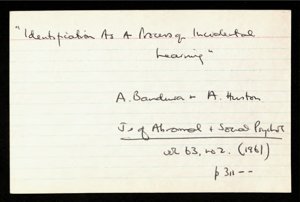 "Identification As A Process of Incidental
Learning"
A. Bandura + A. Huston
J. of Abnormal + Social Psychol
vol 63, no 2. (1961)
p 311 --